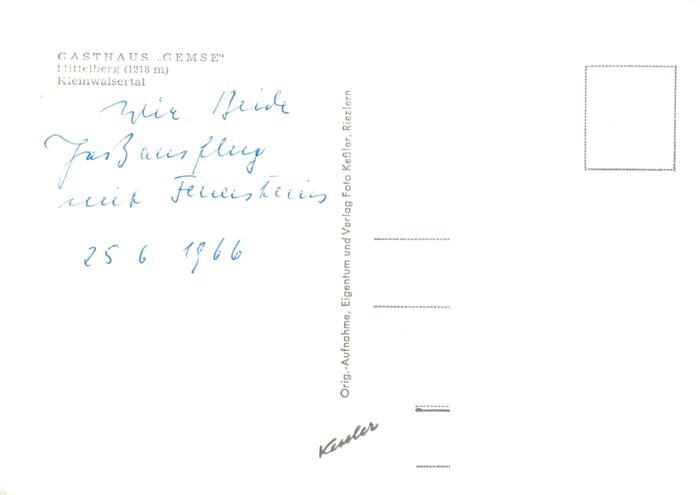 GASTHAUS „GEMSE“
Mittelberg (1218 m)
Kleinwalsertal
Wir Beide
Paßausflug
mit Feuersteins
25 6 1966
Orig.-Aufnahme, Eigentum und Verlag Foto Keßler, Riezlern
Kessler